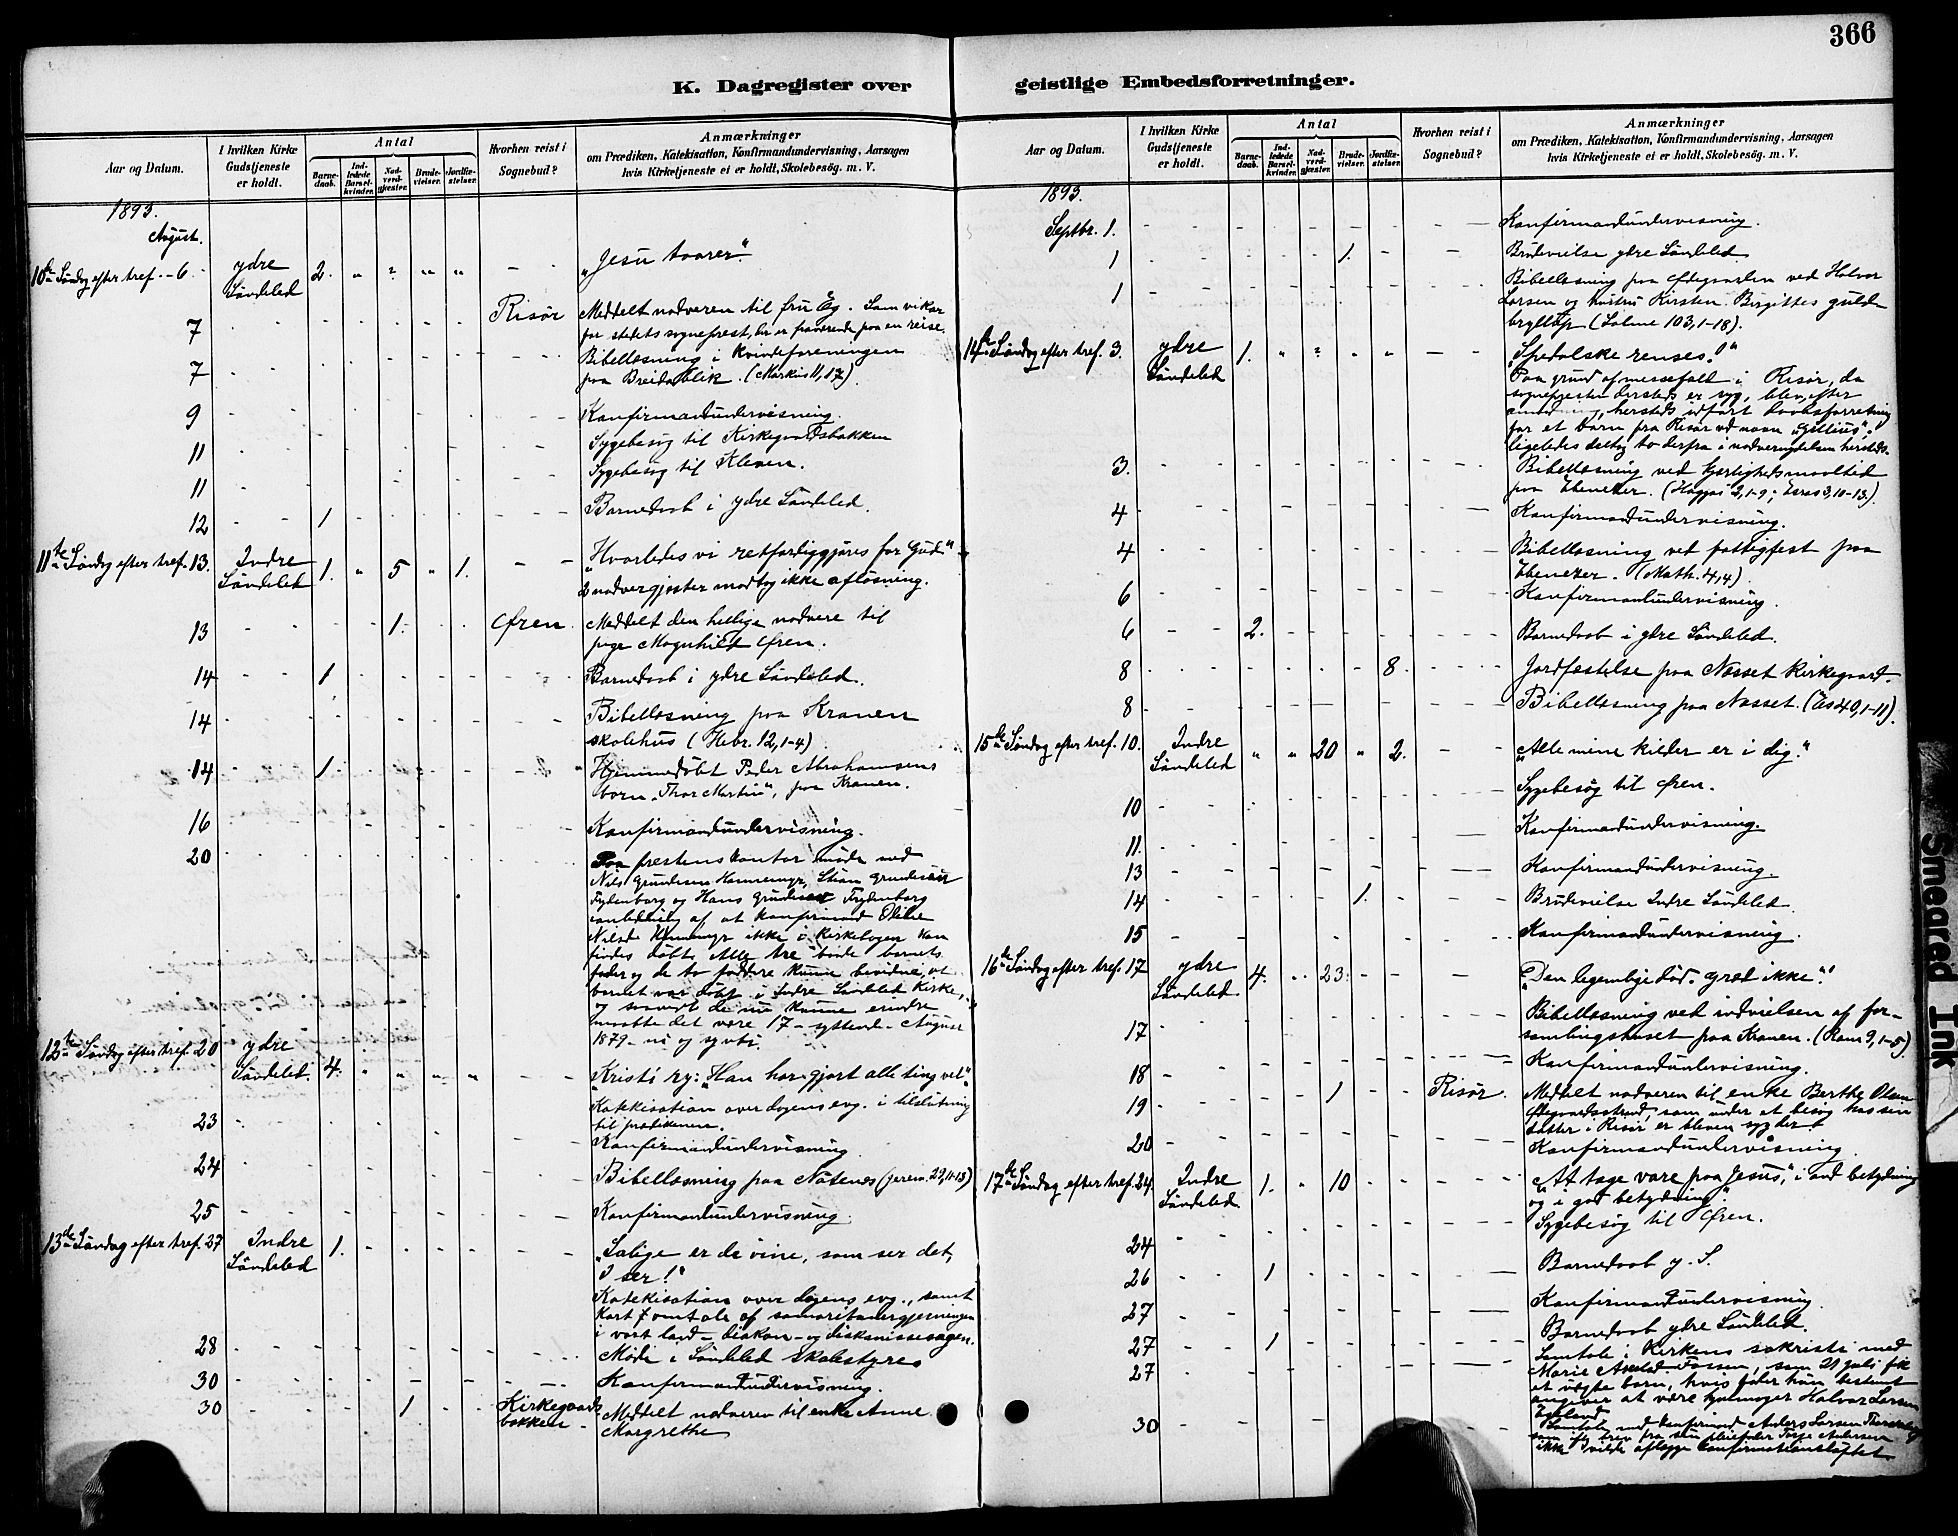 366
K. Dagregister over geistlige Embedsforretninger.
Aar og Datum.
I hvilken Kirke Gudstjeneste er holdt.
Antal
Barnedaab.
Indledede Barselkvinder.
Nadverdgjester.
Brudevielser.
Jordfæstelser.
Hvorhen reist i Sognebud?
Anmærkninger
om Prædiken, Katekisation, Konfirmandundervisning, Aarsagen
hvis Kirketjeneste ei er holdt, Skolebesög. m. V.
1893.
August.
10de Søndag efter tref. - 6. ydre Søndeled 2. „ ? „ „ - - „Jesu taarer".
7 Risør Meddelt nadveren til fru Eg. Som vikar
for stedets sogneprest, der er fraværende paa en reise.
7 Bibellæsning i Kvindeforeningen
paa Breidablik. (Markus 11, 17).
9 Konfirmandundervisning.
11 Sygebesøg til Kirkegaardsbakken
11 Sygebesøg til Kleven.
12 1 Barnedaab i ydre Søndeled.
11te Søndag efter tref. 13. Indre Søndeled 1. „ 5 „ 1. - - „Hvorledes vi retfærdiggjøres for Gud"
2 nadvergjester modtog ikke afløsning.
13 1. Øren. Meddelt den hellige nadvere til
pige Magnhild Øren.
14 1 Barnedaab i ydre Søndeled.
14 Bibellæsning paa Kranen
skolehus (Hebr. 12, 1-4)
14 1 Hjemmedøbt Peder Abrahamsens
barn „Thor Martin", paa Kranen.
16 Konfirmandundervisning.
20 Paa prestens kontor møde med
Nils Grundesen Hammermyr, Stian Grundesen
Frydenborg og Hans Grundesen Frydenborg
i anledning af at konfirmand
Nilsd. ikke i kirkebogen kan
findes døbt. Alle tre baade barnets
fader og de to faddere kunne bevidne, at
barnet var døbt i Indre Søndeled Kirke,
og saavidt de nu kunne erindre
maatte det være 17 - syttende - August
1879 - ni og sytti.
12te Søndag efter tref. 20 ydre Søndeled. 4. „ „ „ „ - - „Kristi ry: „Han har gjort alle ting vel".
Katekisation over dagens evg. i tilslutning
til prædikenen.
23 Konfirmandundervisning.
24 Bibellæsning paa (Jerem. 29, 11-13)
25 Konfirmandundervisning.
13de Søndag efter tref. 27 Indre Søndeled 1. - - - - - - „Salige er de øine, som ser det,
I ser!"
Katekisation over dagens evg., samt
kort omtale af samaritangjerningen
i vort land - diakon- og diakonissesagen.
28 Møde i Søndeled skolestyre
30 Konfirmandundervisning.
30 1 Kirkegaardsbakken Meddelt nadveren til enke Anne
Margrethe
Aar og Datum.
I hvilken Kirke Gudstjeneste er holdt.
Antal
Barnedaab.
Indledede Barselkvinder.
Nadverdgjester.
Brudevielser.
Jordfæstelser.
Hvorhen reist i Sognebud?
Anmærkninger
om Prædiken, Katekisation, Konfirmandundervisning, Aarsagen
hvis Kirketjeneste ei er holdt, Skolebesög. m. V.
1893.
Septbr. 1. Konfirmandundervisning.
1 1. Brudevielse ydre Søndeled
1 Bibellæsning paa Ødegaarden ved Halvor
Larsen og hustru Kirsten Birgittes guld-
bryllup (Salme 103, 1-18).
14de Søndag efter tref. 3. ydre Søndeled 1. „ ? „ „ - - „Spedalske renses!"
Paa grund af messefald i Risør, da
sognepresten dersteds er syg, blev, efter
anmodning, hersteds udført daabsforretning
for et barn fra Risør ved navn
ligeledes deltog to derfra i nadvernydelsen hersteds.
3. Bibellæsning ved kjærlighedsmaaltid
paa Ebenezer. (Haggai 2, 1-9; Esras 3, 10-13).
4 Konfirmandundervisning.
4 Bibellæsning ved fattigfest paa
Ebenezer. (Math. 4, 4)
6 Konfirmandundervisning.
6 2. Barnedaab i ydre Søndeled.
8 8. Jordfæstelse paa Næsset Kirkegaard.
8 Bibellæsning paa Næsset. (Es 40, 1-11).
15de Søndag efter tref. 10. Indre Søndeled „ „ 20 „ 2. - - „Alle mine kilder er i dig."
10 Sygebesøg til Øren.
11. Konfirmandundervisning.
13 Konfirmandundervisning.
14 1. Brudevielse Indre Søndeled.
15 Konfirmandundervisning.
16de Søndag efter tref. 17 ydre Søndeled 4. „ 23. - - - „Den legemlige død. Græd ikke".
17 Bibellæsning ved indvielsen af for-
samlingshuset paa Kranen. (Rom 9, 1-5)
18 Konfirmandundervisning.
19 1 Risør. Meddelt nadveren til enke Berthe Olsen
Ødegaardsstrand, som under et besøg hos sin
datter i Risør er bleven syg der.
20 Konfirmandundervisning.
17de Søndag efter tref. 24. Indre Søndeled 1. „ 10 - - - „At tage vare paa Jesus", i ond betydning
og i god betydning".
24 Sygebesøg til Øren.
26 1 Barnedaab y. S.
27 Konfirmandundervisning.
27 1 Barnedaab ydre Søndeled.
27 Samtale i Kirkens sakristi med
Marie Fossen, som 21 juli fik
et uægte barn, hvis fader hun bestemt
angiver at være Halvor Larsen
30 Samtale med konfirmand Anders Larsen
som ifg. brev fra sin pleiefader Terje Andersen
ikke vilde aflægge konfirmationsløftet
Smeared Ink